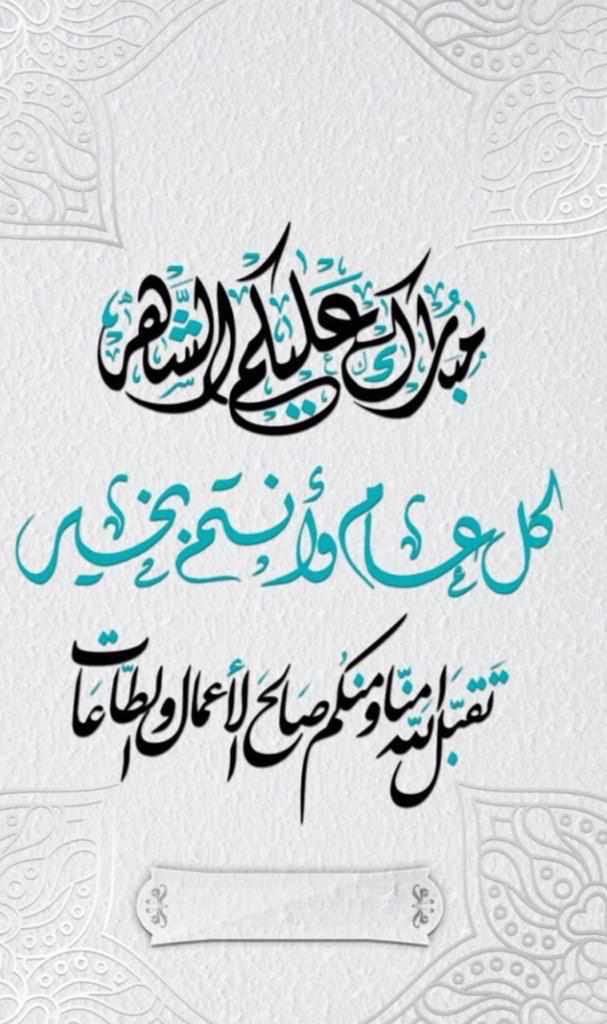 مبارك عليكم الشهر
كل عام وأنتم بخير
تقبل الله منا ومنكم صالح الأعمال والطاعات